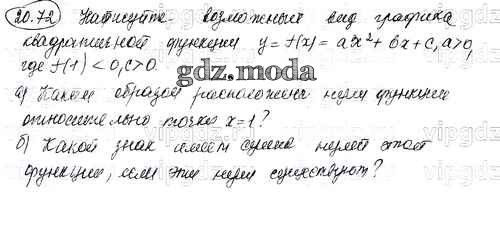 20.72 Нарисуйте возможный вид графика
квадратичной функции y = f(x) = ax² + bx + c, a>0,
где f(1) < 0, c>0.
gdz.moda
а) Каким образом расположены нули функции
относительно точки x=1?
б) Какой знак имеет сумма нулей этой
функции, если эти нули существуют?